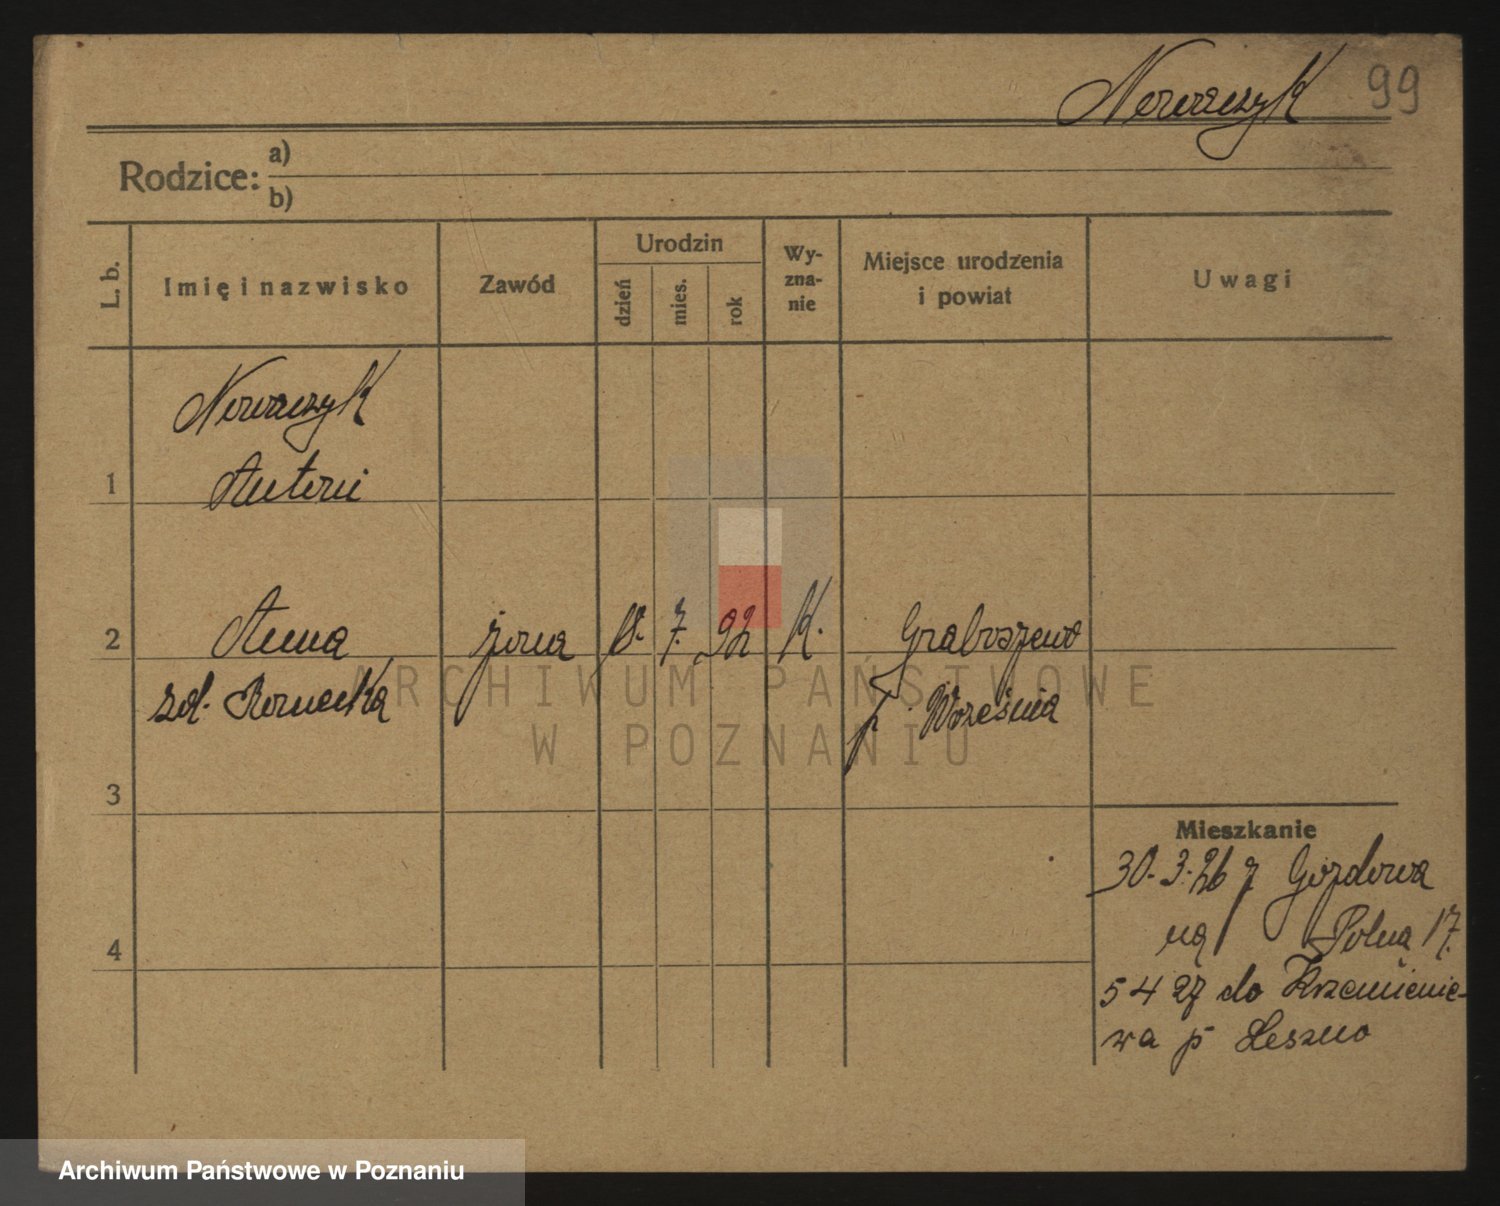 Nowaczyk 99
Rodzice: a)
b)
L. b.
Imię i nazwisko
Zawód
Urodzin
dzień
mies.
rok
Wy-
zna-
nie
Miejsce urodzenia
i powiat
Uwagi
Nowaczyk
1 Antoni
2 Anna żona 7. 92 K. Grabszewo
p. Września
3
Mieszkanie
30.3.26 z Gozdowa
na Polną 17.
4
5 4 27 do Krzemienie-
wa p Leszno
ARCHIWUM PAŃSTWOWE
W POZNANIU
Archiwum Państwowe w Poznaniu